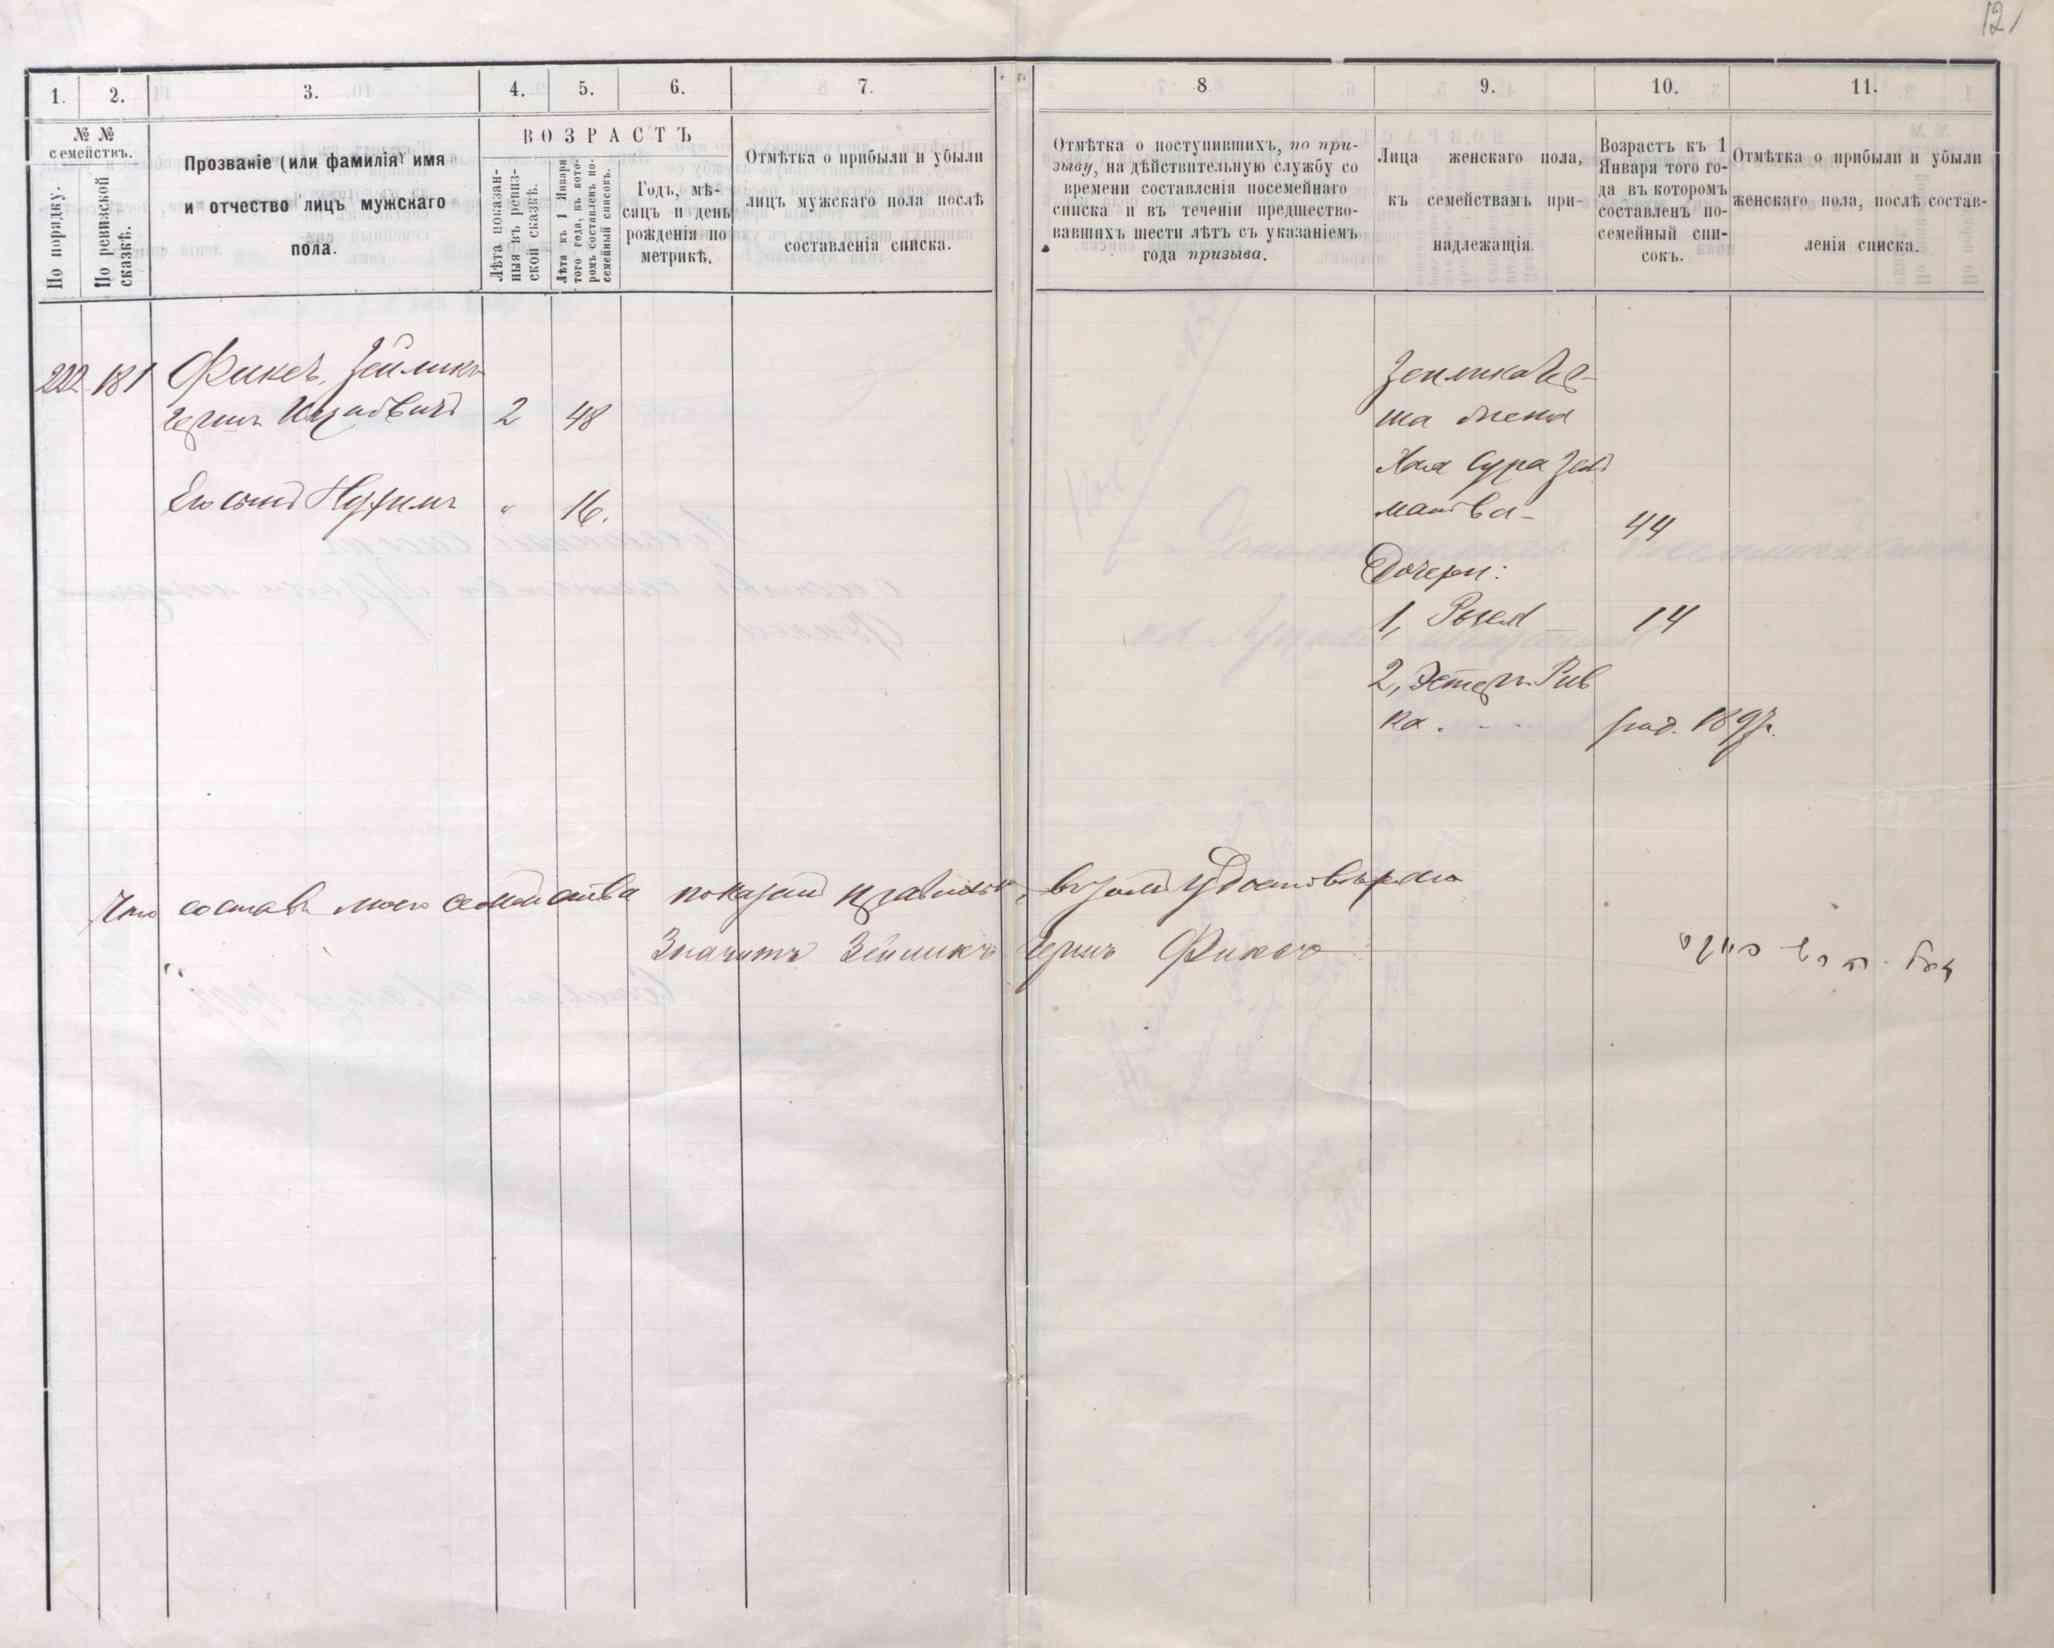 12
1.
2.
3.
4.
5.
6.
7.
8
9.
10.
11.
№ №
семействъ.
По порядку.
По ревизской
сказкѣ.
Прозваніе (или фамилія) имя
и отчество лицъ мужскаго
пола.
ВОЗРАСТЪ
Лѣта показан-
ныя въ ревиз-
ской сказкѣ.
Лѣта къ 1 Января
того года, въ кото-
ромъ составленъ по-
семейный списокъ.
Годъ, мѣ-
сяцъ и день
рожденія по
метрикѣ.
Отмѣтка о прибыли и убыли
лицъ мужскаго пола послѣ
составленія списка.
Отмѣтка о поступившихъ, по при-
зыву, на дѣйствительную службу со
времени составленія посемейнаго
списка и въ теченіи предшество-
вавшихъ шести лѣтъ съ указаніемъ
года призыва.
Лица женскаго пола,
къ семействамъ при-
надлежащія.
Возрастъ къ 1
Января того го-
да въ которомъ
составленъ по-
семейный спи-
сокъ.
Отмѣтка о прибыли и убыли
женскаго пола, послѣ состав-
ленія списка.
222 181 Фиксъ, Зейликъ
Герцъ 2 48
Его сынъ " 16.
Зейлика
жена
Хая Сура
44
Дочери:
1, 14
2, Эстеръ Рив
ка. род. 1897 г.
Что составъ моего семейства показанъ правильно, въ томъ удостовѣряю
Значитъ Зейликъ Герцъ Фиксъ